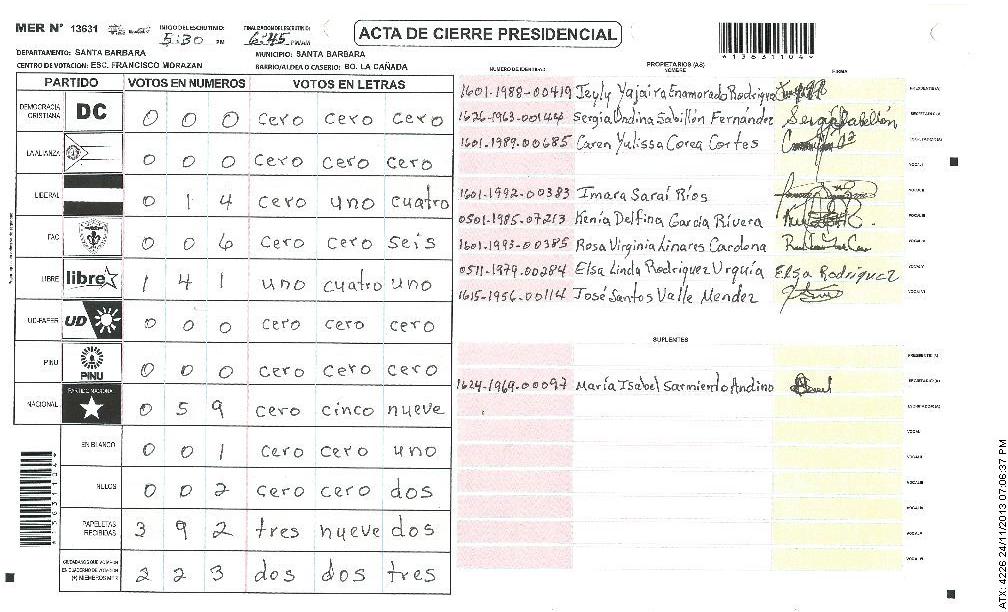 MER Nº 13631 INICIO DEL ESCRUTINIO: 5:30 PM FINALIZACION DEL ESCRUTINIO: 6:45 PM
ACTA DE CIERRE PRESIDENCIAL
*13631104*
DEPARTAMENTO: SANTA BARBARA MUNICIPIO: SANTA BARBARA
CENTRO DE VOTACION: ESC. FRANCISCO MORAZAN BARRIO/ALDEA O CASERIO: BO. LA CAÑADA
PARTIDO VOTOS EN NUMEROS VOTOS EN LETRAS
DEMOCRACIA CRISTIANA DC 0 0 0 cero cero cero
LA ALIANZA 0 0 0 cero cero cero
LIBERAL 0 1 4 cero uno cuatro
FAC 0 0 6 cero cero seis
LIBRE libre 1 4 1 uno cuatro uno
UD-FAPER UD 0 0 0 cero cero cero
PINU PINU 0 0 0 cero cero cero
NACIONAL PARTIDO NACIONAL 0 5 9 cero cinco nueve
EN BLANCO 0 0 1 cero cero uno
NULOS 0 0 2 cero cero dos
PAPELETAS RECIBIDAS 3 9 2 tres nueve dos
CIUDADANOS QUE VOTARON EN CUADERNO DE VOTACION (+) MIEMBROS MER 2 2 3 dos dos tres
PROPIETARIOS (AS)
NUMERO DE IDENTIDAD NOMBRE FIRMA
1601-1988-00419 Jeyly Yajaira Enamorado Rodriguez PRESIDENTE(A)
1626-1963-00144 Sergia Ondina Sabillón Fernández Sergia Sabillón SECRETARIO(A)
1601-1989-00685 Caren Yulissa Corea Cortes ESCRUTADOR(A)
VOCAL I
1601-1992-00383 Imara Saraí Ríos VOCAL II
0501-1985-07213 Kenia Delfina García Rivera VOCAL III
1601-1993-00385 Rosa Virginia Linares Cardona VOCAL IV
0511-1979-00284 Elsa Linda Rodriguez Urquía Elsa Rodriguez VOCAL V
1615-1956-00114 José Santos Valle Mendez VOCAL VI
SUPLENTES
PRESIDENTE(A)
1624-1969-00097 María Isabel Sarmiento Andino SECRETARIO(A)
ESCRUTADOR(A)
VOCAL I
VOCAL II
VOCAL III
VOCAL IV
VOCAL V
VOCAL VI
*13631104*
ATX: 4226 24/11/2013 07:06:37 PM